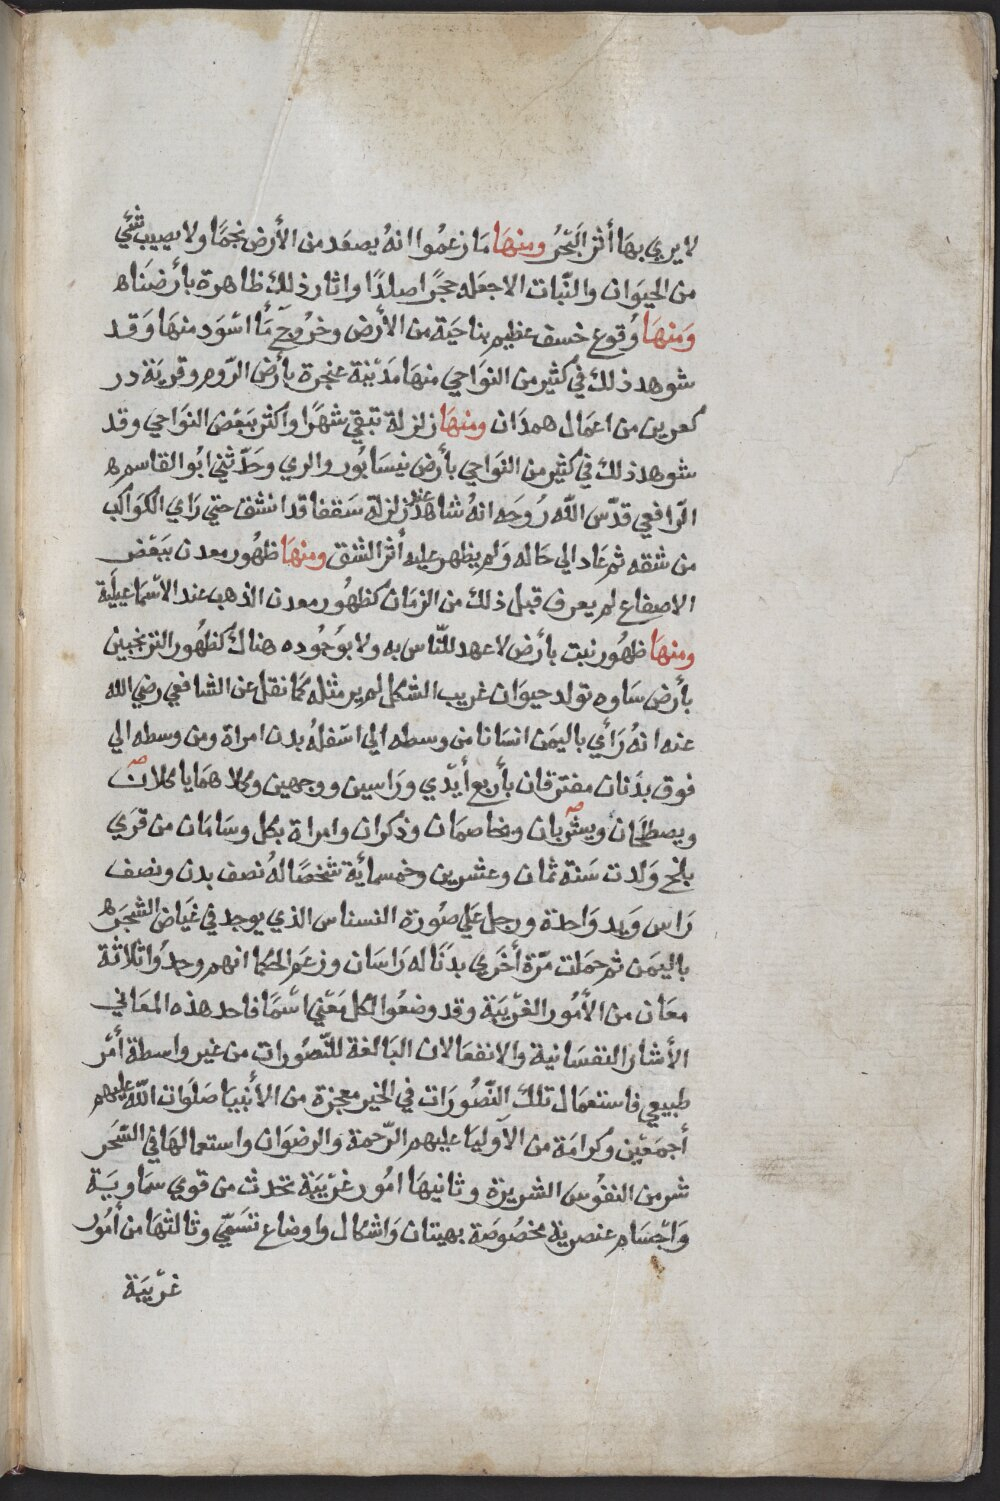 لا يري بها أثر البّحُر ومنهَا مَا زعمُوا انهُ يصعَد من الأرض نجمَا ولا يصيب شئي
من الحيَوان والنّبات الا جعَله حجرًا صلدًا واثار ذلك ظاهرة بأرضنَاه
وَمنهَا وُقوع خسف عظيم بناحيَة من الأرض وخرُوج مَاْ اسّوَد منهَا وَقد
شوهد ذلك في كثير من النوَاحي منهَا مَديْنة عنجرة بأرض الرّوم وقريَة در
كعرين من اعمَال همدَان ومنهَا زلزلة تبقي شهرًا واكثر ببَعْض النوَاحي وقد
شوهد ذلك في كثير من النوَاحي بأرض نيسَابُور والري وحَدّثني ابُو القاسم ه
الرّافعي قدّس اللّه رُوحَه انهُ شاهدَ عند زلزلة سَقفا قد انشق حتي رَاي الكوَاكب
من شقه ثم عَاد الي حَاله وَلم يظهر عليه أثر الشق ومنهَا ظهُور معدن ببَعْض
الاصقاع لم يعرف قبل ذلك من الزمَان كظهُور معدن الذهب عند الاسّمَاعيليَة
ومنهَا ظهُور نبت بأرض لا عهد للنّاس به ولا بوُجُوده هناك كظهُور الترنجبين
بأرض سَاوه تولد حيوَان غريب الشكل لم ير مثله كمَا نقل عن الشافعي رضي الله
عنه انهُ رَأي باليمَن انسَانا من وسطه الي اسّفلهُ بدن امراة ومن وسطه الي
فوق بدَنان مفترقان بأربع أيدّي ورَاسين ووجهين وكلاهمَا ياكلان
ويصطلحَان ويشربان ويخاصمَان وذكران وامراة بكل وسَامَان من قرَي
بلخ وَلدت سَنة ثمَان وعشرين وخمسمائة شخصًا لهُ نصف بدن ونصف
رَاس وَيد وَاحدة ورجل عَلي صُورة النسناس الذي يوجد في غيَاض الشجَره
باليمَن ثم حمَلت مَرّة أخرَي بدَنًا له رَاسَان وزعَم الحكما انهم وجدُوا ثلاثة
معَان من الأمُور الغرْيبَة وقد وضعُوا لكل مَعْني اسّمًا فاحد هذه المعَاني
الأشار النفسَانية والانفعَالات البَالغة للتّصُورات من غير واسطة أمّر
طبيعي فاستعمَال تلك التّصُورَات في الخير معجزة من الأنبيَا صَلوَات اللّه عليهم
أجمَعيْن وكرامَة من الآوليَا عليهم الرّحمة والرضوَان واستعمالهَا في السّحَر
شر من النفُوس الشريرة وثانيهَا امُور غرْيبَة تحدث من قوي سمَاويَة
وَاجْسَام عنصرية مخصُوصَة بهيئات وَاشكال واوضاع تسَمّي وثالثهَا من أمُور
غرْيبَة